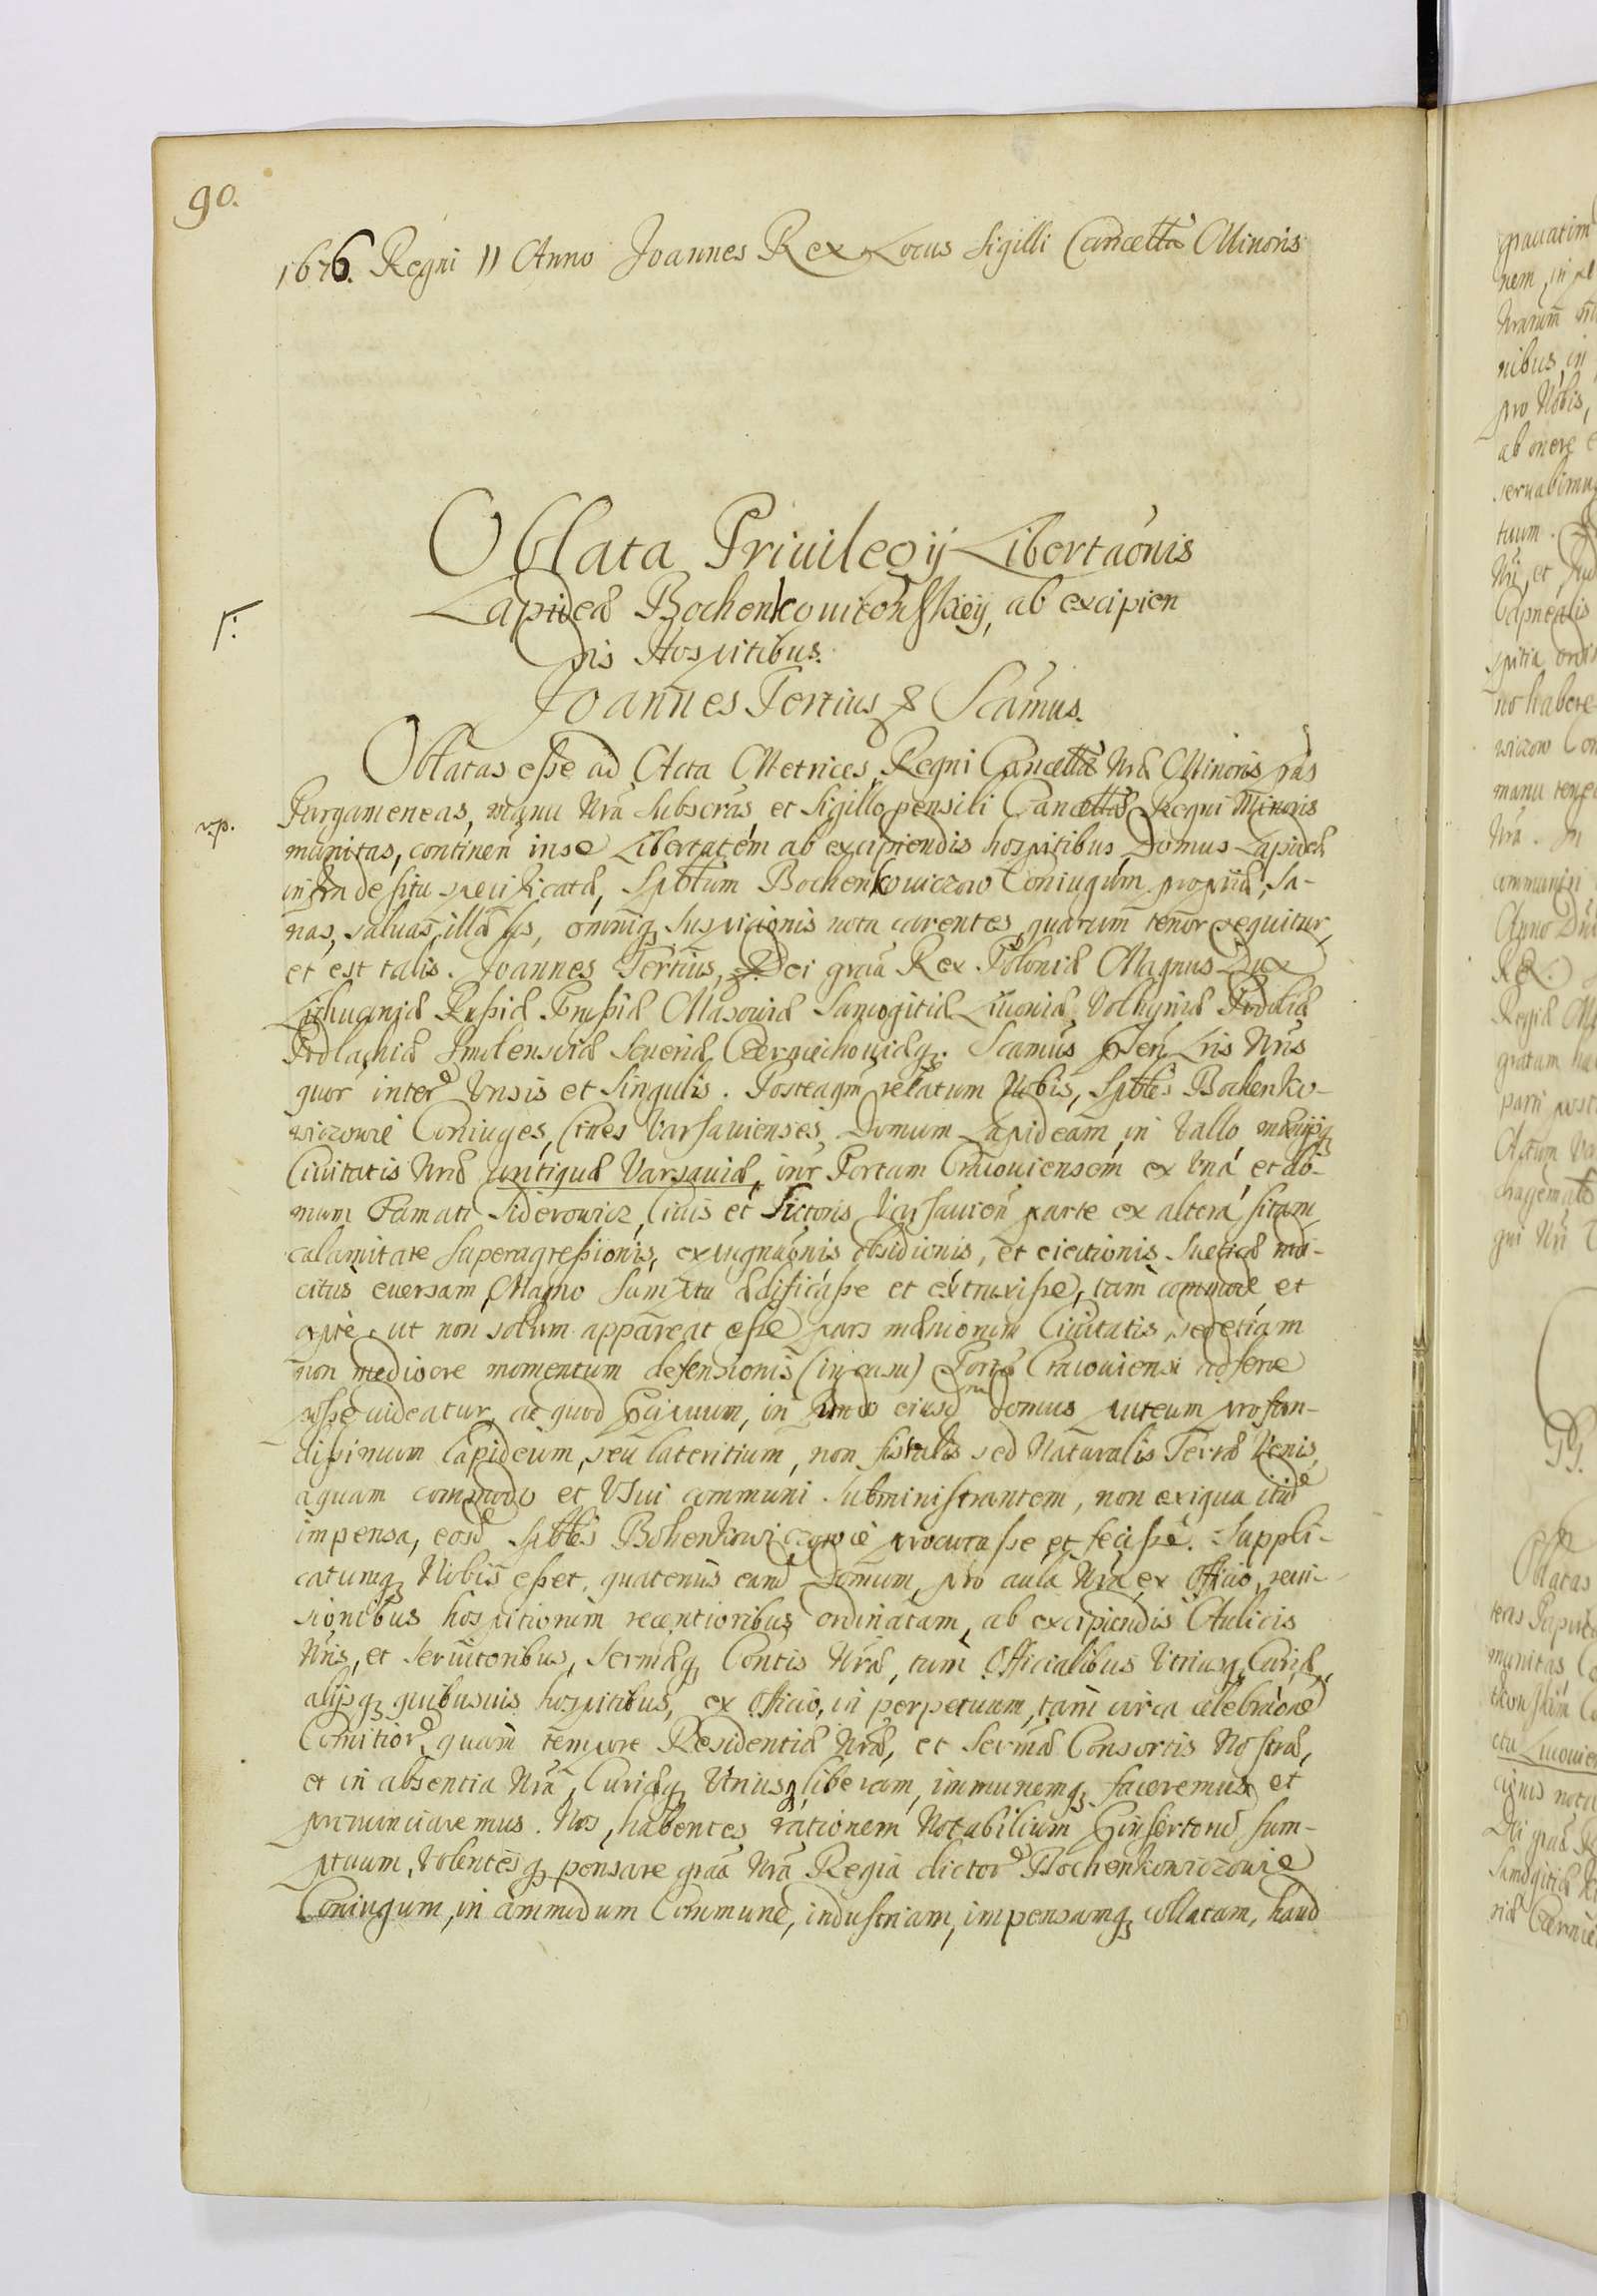 90.
1676. Regni II Anno Joannes Rex Locus Sigilli Cancellæ Minoris
Oblata Priuilegij Libertaõnis
Lapideæ Bochenkouiconskieij, ab excipien
dis Hospitibus.
Joannes Tertius & Scamus.
Oblatas esse ad Acta Metrices Regni Cancellæ Nræ Minoris ras
Pargameneas, manu Nra subscras, et Sigillo pensili Cancellæ Regni Minoris
munitas, continen in se Libertatem ab excipiendis hospitibus Domus Lapideæ
infra de situ specificatæ, Spblium Bochenkouiczow Coniugum propriæ, sa-
nas, saluas, illæsas, omniq suspicionis nota carentes, quarum tenor sequitur,
et est talis. Joannes Tertius, Dei gratia Rex Poloniæ Magnus Dux
Lithuaniæ Russiæ Prussiæ Masouiæ Samogitiæ Liuoniæ Volhyniæ Podoliæ
Podlachiæ Smolensciæ Seueriæ Czerniechouiæq. Scamus Psen Lris Nris
quor interẽ Vnsis et Singulis. Posteaqm relatum Nobis, Spbles Bochenko-
wiczowie Coniuges, Ciues Varsauienses, Domum Lapideam, in Vallo mænijq
Ciuitatis Nræ antiquæ Varsauiæ, intr Portam Cracouiensem ex Vna, et do-
mum Famati Siderowicz, Ciuis et Pictoris Varsauien parte ex altera sitam
calamitate superagressionis, expugnaõnis obsidionis, et eiectionis Sueticæ
citus euersam, Magno Sumptu ædificasse et extruxisse, tam commode et
apte, ut non solum appareat esse pars mænionum Ciuitatis, sed etiam
non mediocre momentum defensionis (in casu) Portæ Cracouiensi adferre
posse uideatur, ac quod Pcipuum, in fundo eiusdm domus puteum profun-
dissimum Lapideum, seu lateritium, non fistulis sed Naturalis Terræ Venis,
aquam commodo et Vsui communi subministrantem, non exigua itid
impensa, eosd Spbles Bohenkowiczowie procurasse et fecisse. Suppli-
catumq Nobis esset, quatenus eand Domum, pro aula Nra ex Officio, reui-
sionibus hospitiorum recentioribus ordinatam, ab excipiendis Aulicis
Nris, et Seruitoribus, Sermæq Contis Nræ, tum Officialibus Vtriusq Curiæ,
alijsq quibusuis hospitibus, ex Officio, in perpetuum, tam circa celebraõne
Comitior, quam tempore Residentiæ Nræ, et Sermæ Consortis Nostræ,
et in absentia Nra, Curiæq Vtriusq liberam, immunemq faceremus et
pronunciaremus. Nos, habentes rationem Notabilium Pinsertorum sum-
ptuum, Volentesq pensare graa Nra Regia dictor Bochenkowiczowie
Coniugum, in commodum Commune, industriam, impensamq collatam, haud